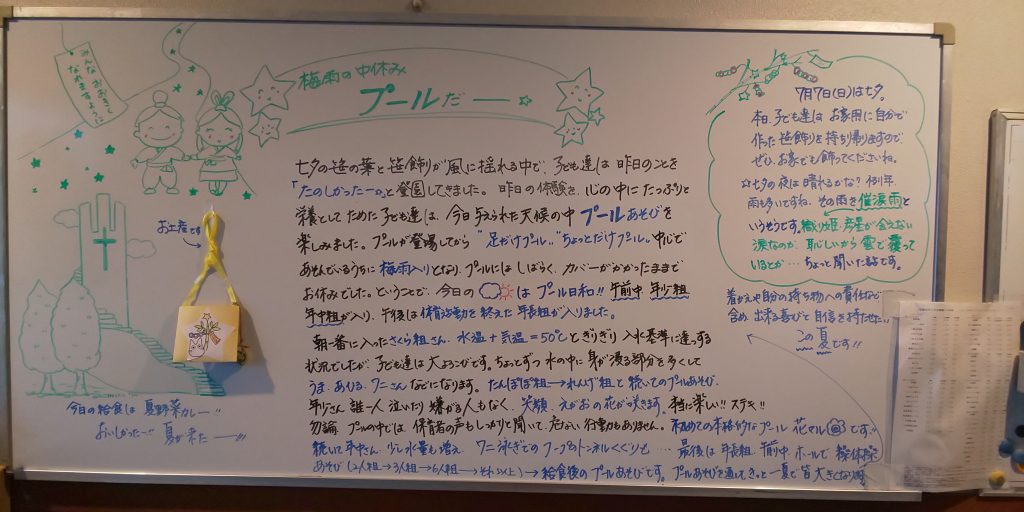 みんなおおきく
なれますように
お土産です
今日の給食は 夏野菜カレー!!
おいしかったー!! 夏が来たー!!!
梅雨の中休み
プールだー
七夕の笹の葉と笹飾りが風に揺れる中で、子ども達は昨日のことを
「たのしかったー」と登園してきました。昨日の体験を、心の中にたっぷりと
栄養としてためた子ども達は、今日与えられた天候の中プールあそびを
楽しみました。プールが登場してから"足だけプール""ちょっとだけプール"中心で
あそんでいるうちに梅雨入りとなり、プールにはしばらく、カバーがかかったままで
お休みでした。ということで、今日の は プール日和!! 午前中 年少組
年中組が入り、午後は体育活動を終えた年長組が入りました。
朝一番に入ったさくら組さん、水温+気温=50℃とぎりぎり入水基準に達する
状況でしたが、子ども達は大よろこびです。ちょっとずつ水の中に身が浸る部分を多くして
うま、あひる、ワニさんなどになります。たんぽぽ組→れんげ組と続いてのプールあそび、
年少さん誰一人泣いたり嫌がる人もなく、笑顔、えがおの花が咲きます。本当に楽しい!! ステキ!!
勿論 プールの中では、保育者の声もしっかりと聞いて、危ない行動もありません。初めての本格的なプール 花マルです。
続いて年中さん、少し水量も増え、ワニ泳ぎでのフープのトンネルくぐりも…。最後は年長組、午前中、ホールで 操体操
あそび(2人組→3人組→6人組→それ以上)→給食後のプールあそびです。プールあそびを通してきっと一夏で皆大きくなり
7月7日(日)は七夕。
本日、子ども達はお家用に自分で
作った笹飾りを持ち帰りますので、
ぜひ、お家でも飾ってくださいね。
☆七夕の夜は晴れるかな? 例年
雨も多いですね、その雨を催涙雨と
いうそうです。織り姫、彦星が会えない
涙なのか、恥しいから雲で覆って
いるとか…ちょっと聞いた話です。
着がえや自分の持ち物への責任など
含め、出来る喜びと自信を持たせたい
この夏です!!